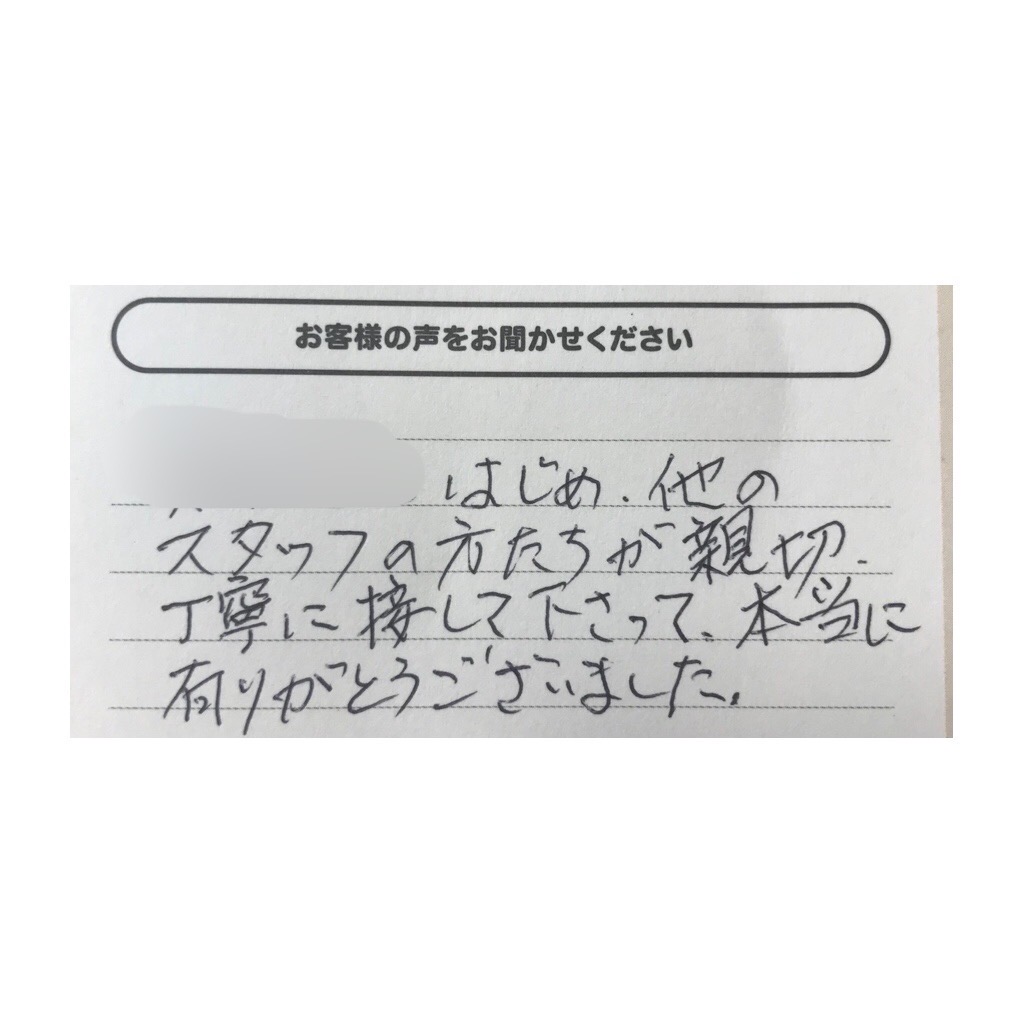 お客様の声をお聞かせください
はじめ、他の
スタッフの方たちが親切、
丁寧に接して下さって、本当に
有りがとうございました。